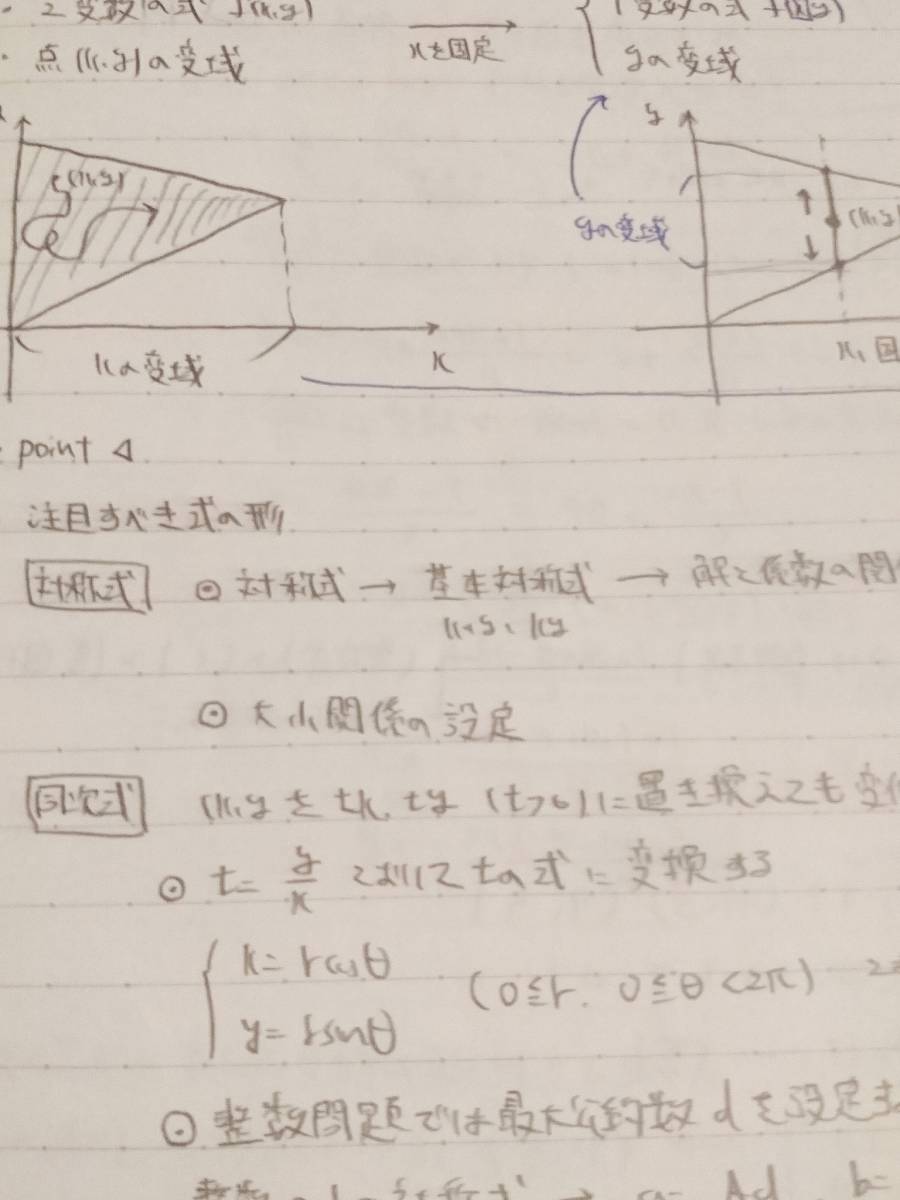 ・2変数の式 f(x,y)
・点(x,y)の変域
xを固定
1変数の式
yの変域
(x,y)
x
xの変域
y
yの変域
(x,y
x,固
point 4
注目すべき式の形
対称式 ⊙ 対称式 → 基本対称式 → 解と係数の関
x+y、xy
⊙ 大小関係の設定
同次式 (x,yをtx,ty (t>0)に置き換えても変
⊙ t= y/x とおいてtの式に変換する
x= rcosθ
y= rsinθ
(0≦r. 0≦θ<2π)
⊙ 整数問題では最大公約数dを設定す